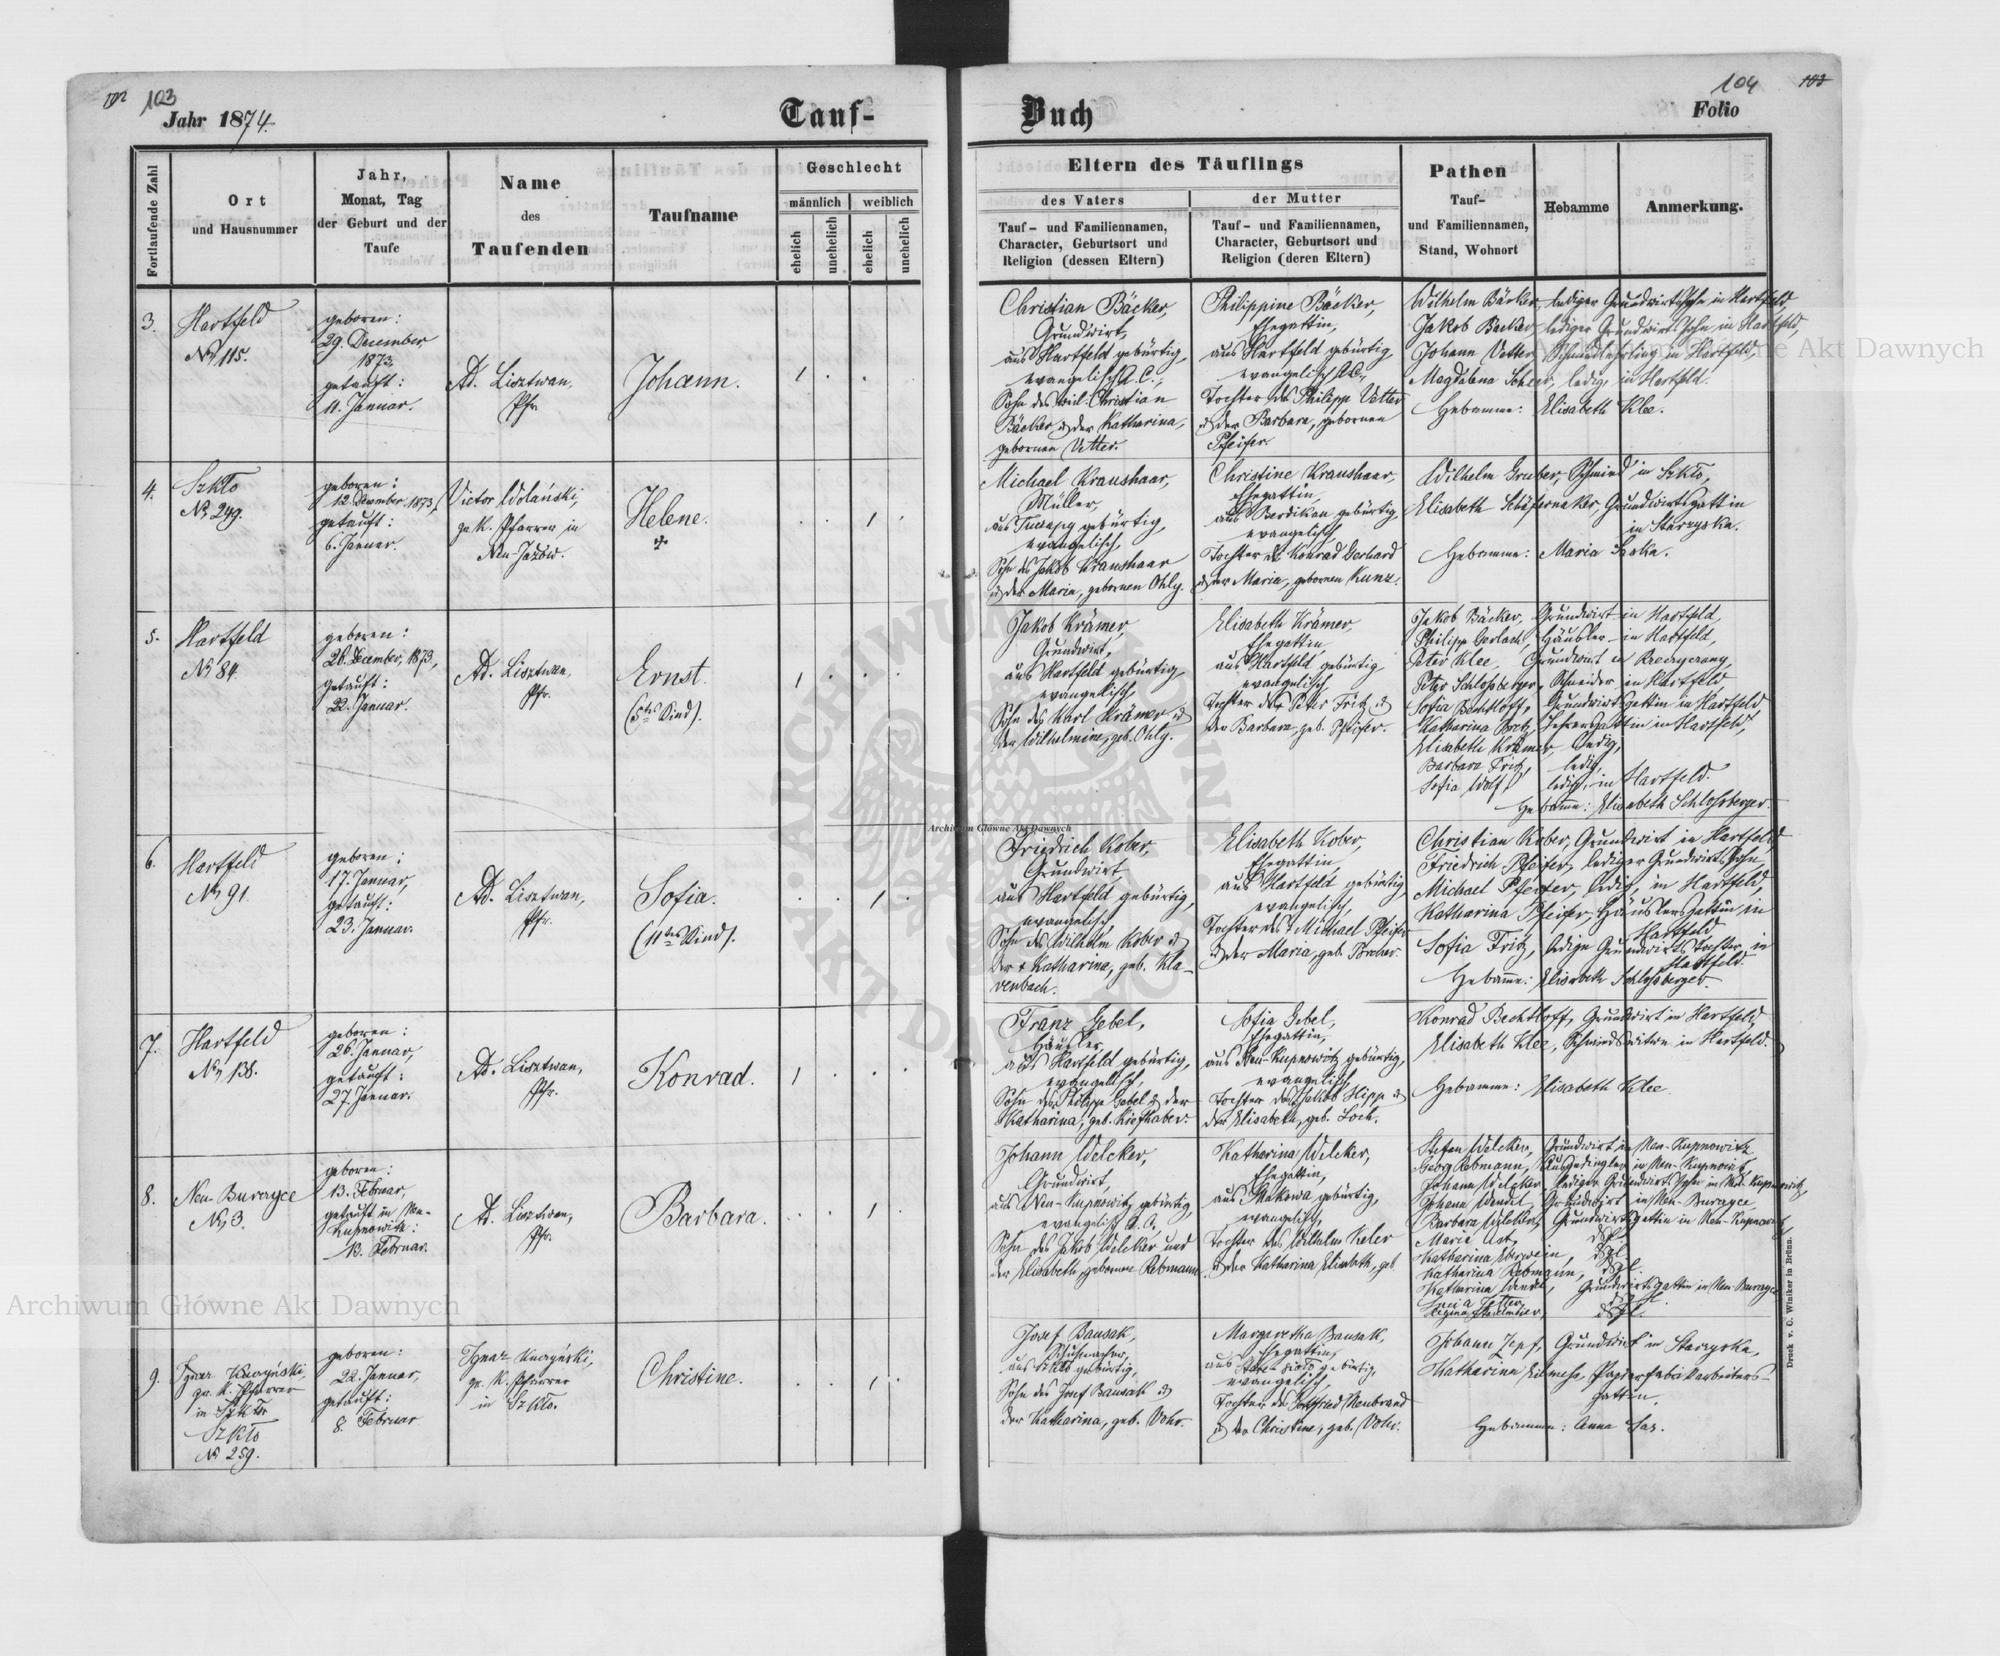 103
Jahr 1874.
Tauf-
Fortlaufende Zahl
Ort
und Hausnummer
Jahr,
Monat, Tag
der Geburt und der
Taufe
Name
des
Taufenden
Taufname
Geschlecht
männlich
weiblich
ehelich
unehelich
ehelich
unehelich
3.
Hartfeld
No 115.
geboren:
29. December
1873,
getauft:
11. Januar.
Ad. Lisztwan,
Pfr.
Johann.
4.
Szkło
No 249.
geboren:
12. December 1873,
getauft:
6. Januar.
Victor Wolański,
gr. k. Pfarrer in
Neu-Jażów.
Helene.
5.
Hartfeld
No 84.
geboren:
26. December, 1873,
getauft:
22. Januar.
Ad. Lisztwan,
Pfr.
Ernst.
(5tes Kind).
6.
Hartfeld
No 91.
geboren:
17. Januar,
getauft:
23. Januar.
Ad. Lisztwan,
Pfr.
Sofia.
(11tes Kind).
7.
Hartfeld
No 138.
geboren:
26. Januar,
getauft:
27. Januar.
Ad. Lisztwan,
Pfr.
Konrad.
8.
Neu-Burczyce
No 3.
geboren:
13. Februar,
getauft in Neu-
Kupnowitz:
13. Februar.
Ad. Lisztwan,
Pfr.
Barbara.
9.
gr. k. Pfarrer
in Szkło
Szkło
No 259.
geboren:
22. Januar,
getauft:
8. Februar
gr. k. Pfarrer
in Szkło.
Christine.
104
103
Buch
Folio
Eltern des Täuflings
des Vaters
der Mutter
Tauf- und Familiennamen,
Character, Geburtsort und
Religion (dessen Eltern)
Tauf- und Familiennamen,
Character, Geburtsort und
Religion (deren Eltern)
Pathen
Tauf-
und Familiennamen,
Stand, Wohnort
Hebamme
Anmerkung.
Christian Bäcker,
Grundwirt,
aus Hartfeld gebürtig,
evangelisch A. C.,
Sohn des weil. Christian
Bäcker u der Katharina,
gebornen Vetter.
Philippine Bäcker,
Ehegattin,
aus Hartfeld gebürtig,
evangelisch A. C.,
Tochter des Philipp Vetter
u der Barbara, gebornen
Pfeifer.
Wilhelm Bäcker, lediger Grundwirtssohn in Hartfeld,
Jakob Becker, lediger Grundwirtssohn in Hartfeld,
Johann Vetter, Schmiedlehrling in Hartfeld,
Magdalena Scherer, ledig, in Hartfeld.
Hebamme: Elisabeth Klee.
Michael Kraushaar,
Müller,
gebürtig,
evangelisch,
Sohn des Jakob Kraushaar
u der Maria, gebornen Ohlg.
Christine Kraushaar,
Ehegattin,
aus Berdikau gebürtig,
evangelisch,
Tochter des Konrad Gerhard
u der Maria, gebornen Kunz.
Wilhelm Gruber, Schmied in Szkło,
Elisabeth Schäfernaker, Grundwirtsgattin
in Starzyska.
Hebamme: Maria Saska.
Jakob Krämer,
Grundwirt,
aus Hartfeld gebürtig,
evangelisch,
Sohn des Karl Krämer u
der Wilhelmine, geb. Ohlg.
Elisabeth Krämer,
Ehegattin,
aus Hartfeld gebürtig,
evangelisch,
Tochter des Peter Fritz u
der Barbara, geb. Pfeifer.
Jakob Bäcker, Grundwirt in Hartfeld,
Philipp Gerlach, Häusler in Hartfeld,
Peter Klee, Grundwirt in
Peter Schloßberger, Schneider in Hartfeld
Sofia Bechtloff, Grundwirtsgattin in Hartfeld
Katharina Bretz, Lehrersgattin in Hartfeld,
Elisabeth Krämer, ledig,
Barbara Fritz, ledig,
Sofia Wolf, ledig, in Hartfeld.
Hebamme: Elisabeth Schloßberger.
Friedrich Kober,
Grundwirt,
aus Hartfeld gebürtig,
evangelisch,
Sohn des Wilhelm Kober u
der + Katharina, geb. Kla-
denbach.
Elisabeth Kober,
Ehegattin,
aus Hartfeld gebürtig,
evangelisch,
Tochter des Michael Pfeifer
u der Maria, geb. Porcher.
Christian Kober, Grundwirt in Hartfeld
Friedrich Pfeifer, lediger Grundwirtssohn,
Michael Pfeifer, ledig, in Hartfeld,
Katharina Pfeifer, Häuslersgattin in
Hartfeld
Sofia Fritz, ledige Grundwirtstochter in
Hartfeld.
Hebamme: Elisabeth Schloßberger.
Franz Gebel,
Häusler,
aus Hartfeld gebürtig,
evangelisch,
Sohn des Philipp Gebel u der
Katharina, geb. Kiefhaber.
Sofia Gebel,
Ehegattin,
aus Neu-Kupnowitz gebürtig,
evangelisch,
Tochter des Jakob Hipp u
der Elisabeth, geb. Loch.
Konrad Bechtloff, Grundwirt in Hartfeld,
Elisabeth Klee, Schmiedswitwe in Hartfeld.
Hebamme: Elisabeth Klee.
Johann Welcker,
Grundwirt,
aus Neu-Kupnowitz gebürtig,
evangelisch A. C.,
Sohn des Jakob Welcker und
der Elisabeth, gebornen Rebmann
Katharina Welcker,
Ehegattin,
aus Makowa gebürtig,
evangelisch,
Tochter des Wilhelm Keler
u der Katharina Elisabeth, geb
Stefan Welcker, Grundwirt in Neu-Kupnowitz
Georg Rebmann, Ausgedingler in Neu-Kupnowitz,
Johann Welcker, lediger Grundwirtssohn in Neu-Kupnowitz,
Johann Wendel, Grundwirt in Neu-Burczyce,
Barbara Welcker, Grundwirtsgattin in Neu-Kupnowitz,
Maria Ast, dsgl.
Katharina Eberwein, dsgl.
Katharina Rebmann, dsgl.
Katharina Wendel, Grundwirtsgattin in Neu-Burczyce
dsgl.
Josef Bausak,
Schuhmacher,
aus Szkło gebürtig,
Sohn des Josef Bausak u
der Katharina, geb. Vohr.
Margaretha Bausak,
Ehegattin,
gebürtig,
evangelisch,
Tochter des Gottfried Neubrand
u der Christine, geb. Vohr.
Johann Zepf, Grundwirt in Starzyska,
Katharina Papierfabrikarbeiters-
gattin.
Hebamme: Anna Sas.
Druck v. C. Winiker in Brünn.
Archiwum Główne Akt Dawnych
Archiwum Główne Akt Dawnych
Archiwum Główne Akt Dawnych
ARCHIWUM GŁÓWNE AKT DAWNYCH